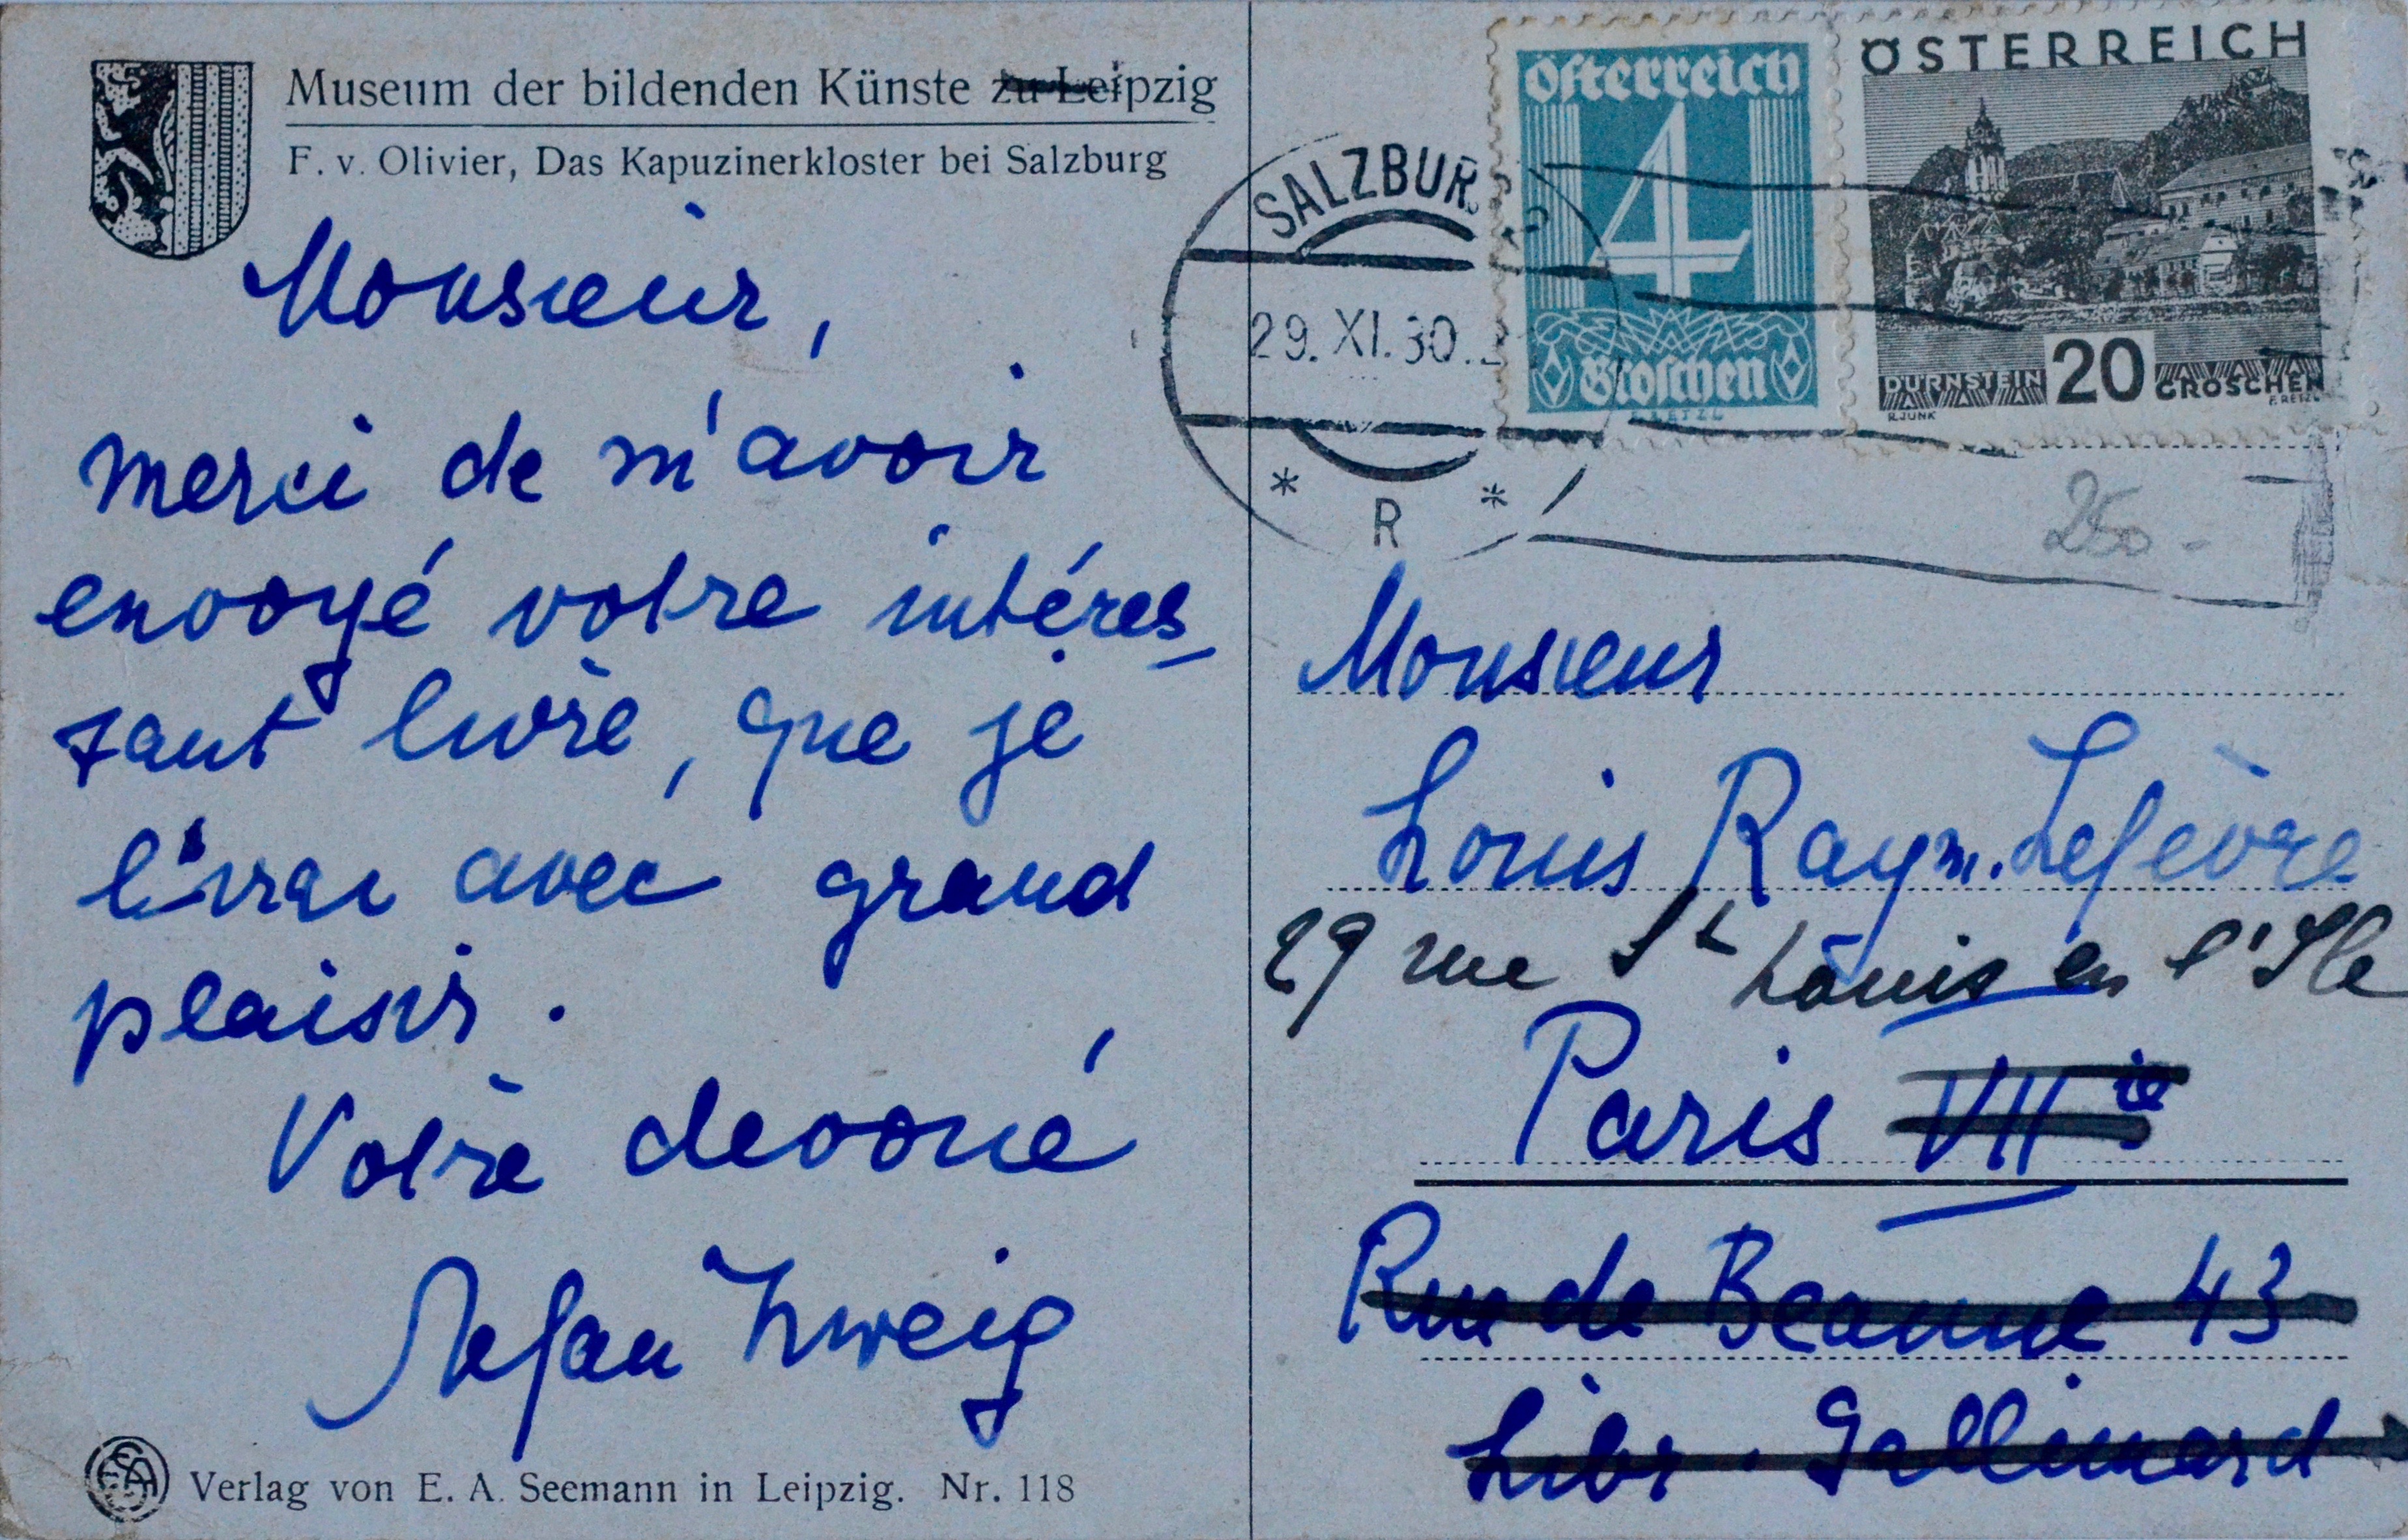 Museum der bildenden Künste zu Leipzig
F. v. Olivier, Das Kapuzinerkloster bei Salzburg
Monsieur,
merci de m'avoir
envoyé votre intéres-
sant livre, que je
lirai avec grand
plaisir.
Votre devoué
Stefan Zweig
Verlag von E. A. Seemann in Leipzig. Nr. 118
Österreich
4
Groschen
ÖSTERREICH
DÜRNSTEIN 20 GROSCHEN
R. JUNK
F. RETZL
SALZBURG
29. XI. 30.
* R *
250 -
Monsieur
Louis Raym. Lefèvre
29 rue St Louis en l'Ile
Paris VIIie
Rue de Beaune 43
Libr. Gallimard